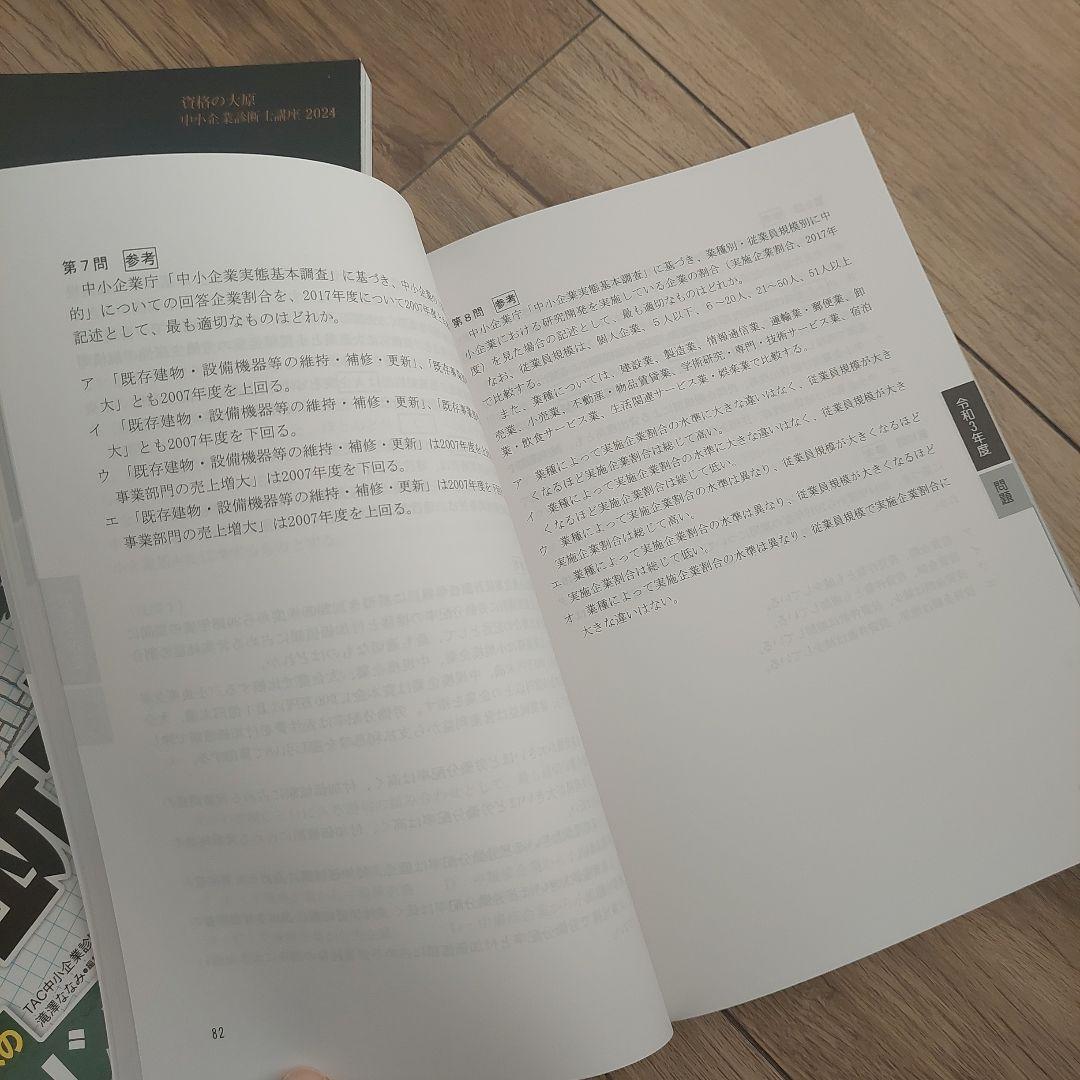 資格の大原
中小企業診断士講座 2024
第7問 参考
中小企業庁「中小企業実態基本調査」に基づき、中小企業の
的」についての回答企業割合を、2017年度について2007年度
記述として、最も適切なものはどれか。
ア 「既存建物・設備機器等の維持・補修・更新」、「既存事業
大」とも2007年度を上回る。
イ 「既存建物・設備機器等の維持・補修・更新」、「既存事業
大」とも2007年度を下回る。
ウ 「既存建物・設備機器等の維持・補修・更新」は2007年度を
事業部門の売上増大」は2007年度を下回る。
エ 「既存建物・設備機器等の維持・補修・更新」は2007年度を下回
事業部門の売上増大」は2007年度を上回る。
82
第8問 参考
中小企業庁「中小企業実態基本調査」に基づき、業種別・従業員規模別に中
小企業における研究開発を実施している企業の割合(実施企業割合、2017年
度)を見た場合の記述として、最も適切なものはどれか。
なお、従業員規模は、個人企業、5人以下、6〜20人、21〜50人、51人以上
で比較する。
また、業種については、建設業、製造業、情報通信業、運輸業・郵便業、卸
売業、小売業、不動産・物品賃貸業、学術研究・専門・技術サービス業、宿泊
業・飲食サービス業、生活関連サービス業・娯楽業で比較する。
ア 業種によって実施企業割合の水準に大きな違いはなく、従業員規模が大き
くなるほど実施企業割合は総じて高い。
イ 業種によって実施企業割合の水準に大きな違いはなく、従業員規模が大き
くなるほど実施企業割合は総じて低い。
ウ 業種によって実施企業割合の水準は異なり、従業員規模が大きくなるほど
実施企業割合は総じて高い。
エ 業種によって実施企業割合の水準は異なり、従業員規模が大きくなるほど
実施企業割合は総じて低い。
オ 業種によって実施企業割合の水準は異なり、従業員規模で実施企業割合に
大きな違いはない。
令和3年度
問題
TAC中小企業診
滝澤ななみ●